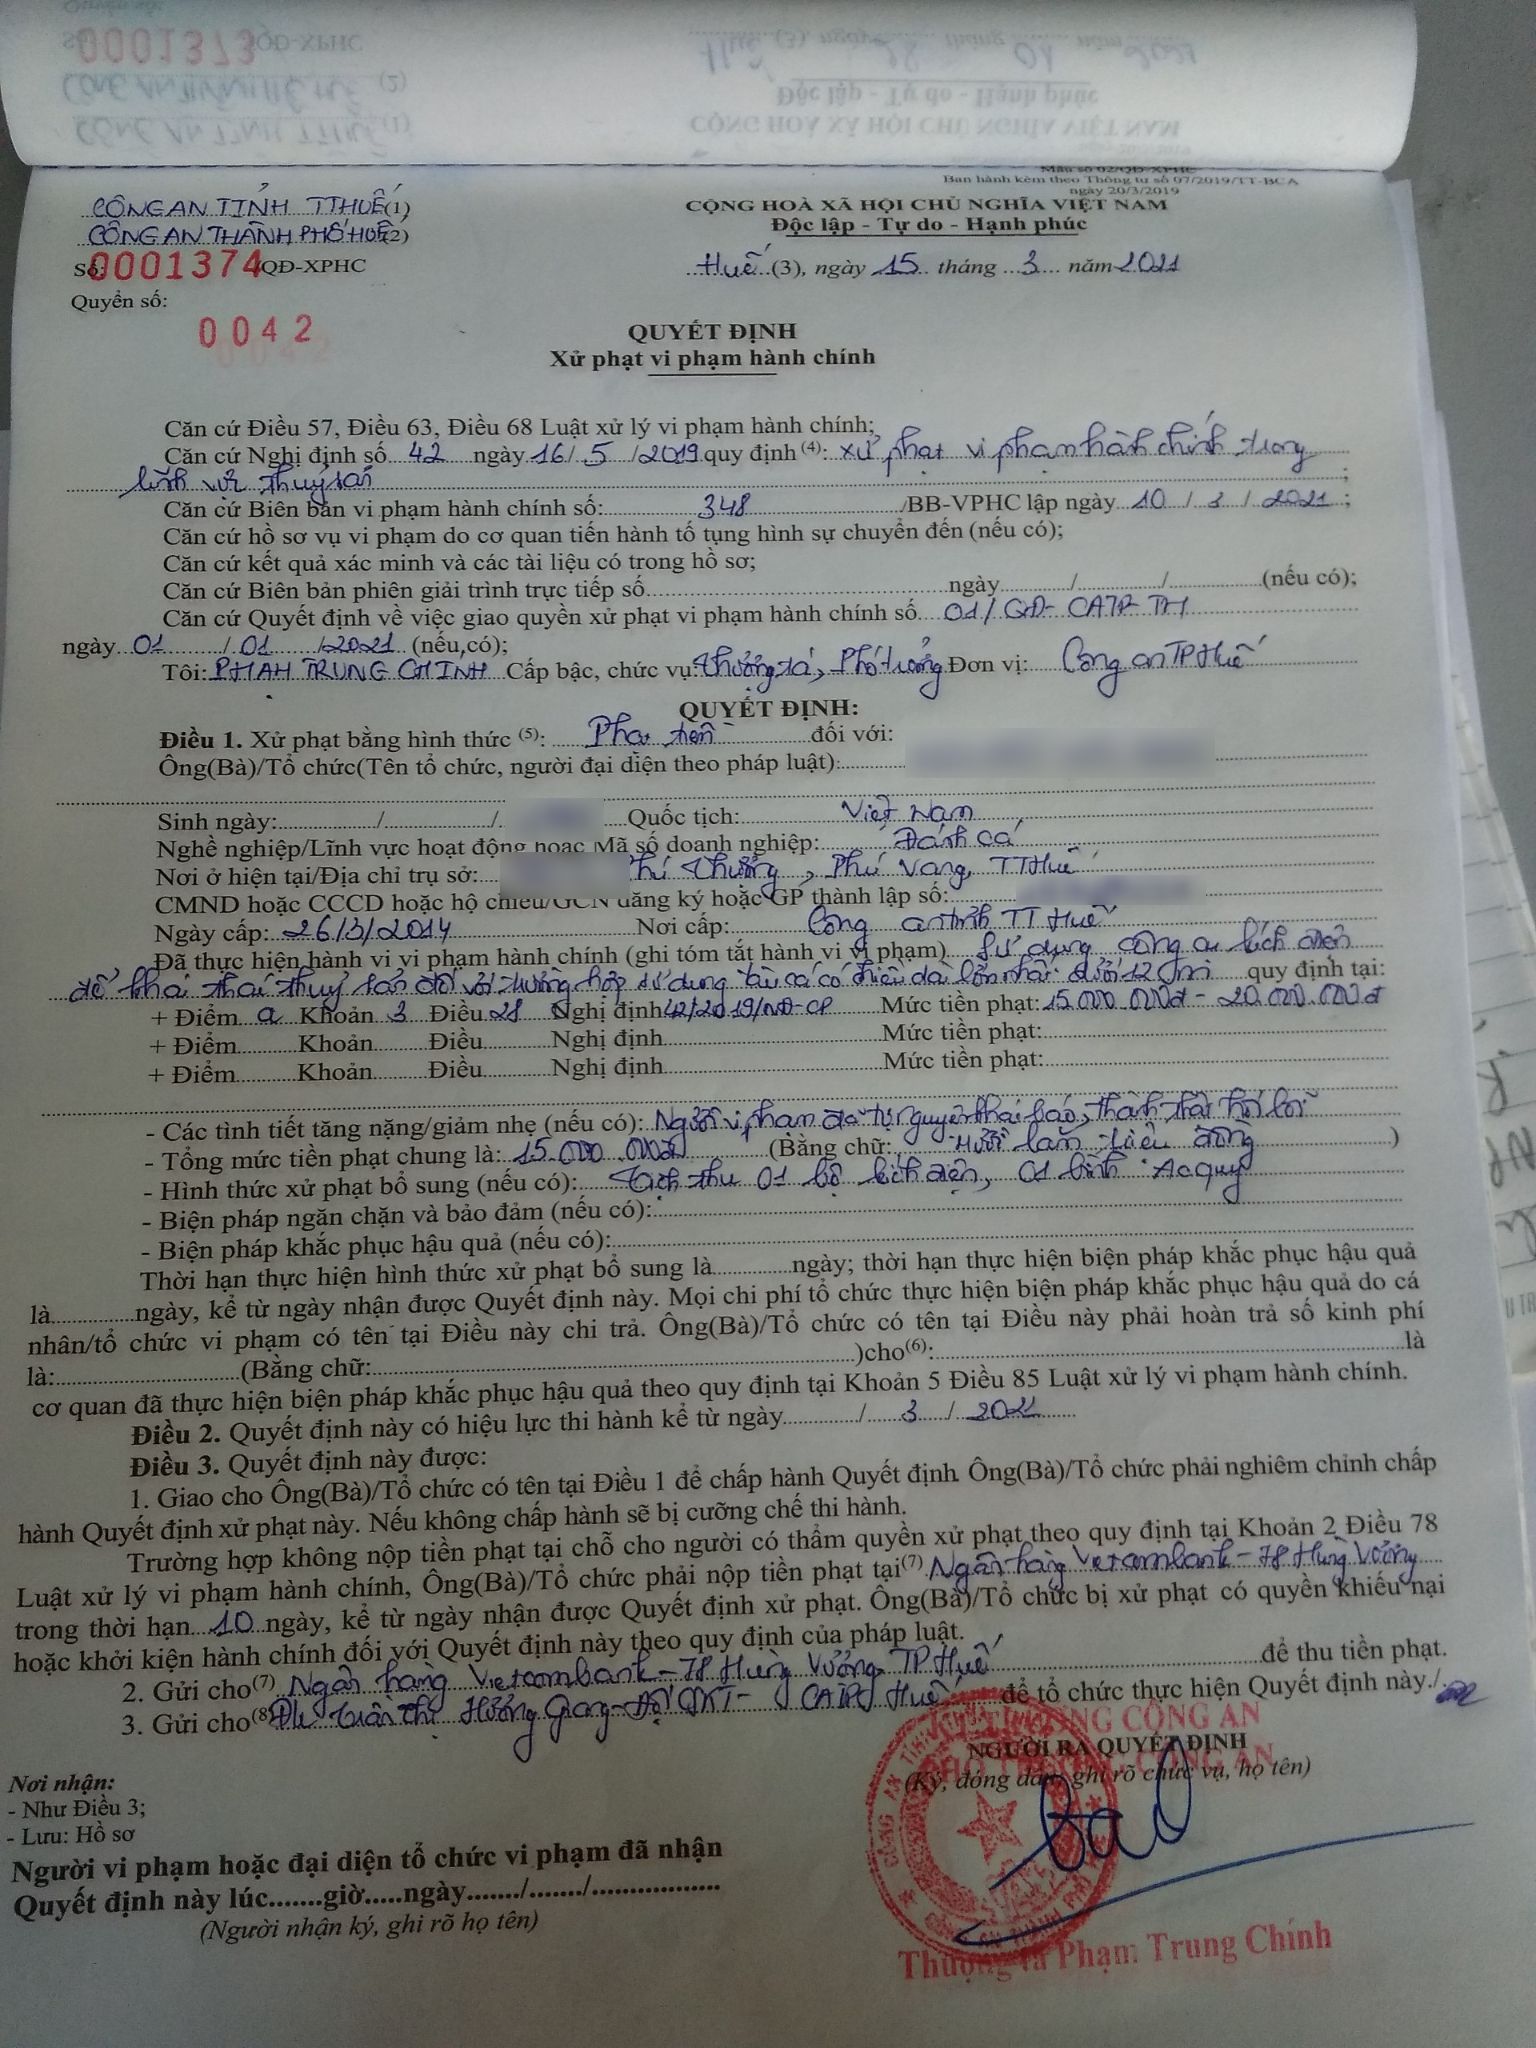 Số 0001373 QĐ-XPHC
Mẫu số 02/QĐ-XPHC
Ban hành kèm theo Thông tư số 07/2019/TT-BCA
ngày 20/3/2019
CÔNG AN TỈNH TTHUẾ (1)
CÔNG AN THÀNH PHỐ HUẾ (2)
Số: 0001374/QĐ-XPHC
Quyển số:
0042
CỘNG HOÀ XÃ HỘI CHỦ NGHĨA VIỆT NAM
Độc lập - Tự do - Hạnh phúc
Huế (3), ngày 15 tháng 3 năm 2021
QUYẾT ĐỊNH
Xử phạt vi phạm hành chính
Căn cứ Điều 57, Điều 63, Điều 68 Luật xử lý vi phạm hành chính;
Căn cứ Nghị định số 42 ngày 16/ 5 /2019 quy định (4): xử phạt vi phạm hành chính trong
lĩnh vực thuỷ sản ;
Căn cứ Biên bản vi phạm hành chính số: 348 /BB-VPHC lập ngày 10 / 3 / 2021 ;
Căn cứ hồ sơ vụ vi phạm do cơ quan tiến hành tố tụng hình sự chuyển đến (nếu có);
Căn cứ kết quả xác minh và các tài liệu có trong hồ sơ;
Căn cứ Biên bản phiên giải trình trực tiếp số............ngày........../........../..........(nếu có);
Căn cứ Quyết định về việc giao quyền xử phạt vi phạm hành chính số 01/QĐ-CATP-TH
ngày 01 / 01 /2021 (nếu có);
Tôi: PHẠM TRUNG CHINH Cấp bậc, chức vụ: Thượng tá, Phó trưởng Đơn vị: Công an TP Huế
QUYẾT ĐỊNH:
Điều 1. Xử phạt bằng hình thức (5): Phạt tiền đối với:
Ông(Bà)/Tổ chức(Tên tổ chức, người đại diện theo pháp luật):
Sinh ngày:........../........../ Quốc tịch: Việt Nam
Nghề nghiệp/Lĩnh vực hoạt động hoặc Mã số doanh nghiệp: Đánh cá
Nơi ở hiện tại/Địa chỉ trụ sở: Phú Thượng, Phú Vang, TTHuế
CMND hoặc CCCD hoặc hộ chiếu/GCN đăng ký hoặc GP thành lập số:
Ngày cấp: 26/3/2014 Nơi cấp: Công an tỉnh TT Huế
Đã thực hiện hành vi vi phạm hành chính (ghi tóm tắt hành vi vi phạm) Sử dụng công cụ kích điện
để khai thác thuỷ sản đối với trường hợp sử dụng tàu cá có chiều dài lớn nhất dưới 12 m quy định tại:
+ Điểm a Khoản 3 Điều 28 Nghị định 42/2019/NĐ-CP Mức tiền phạt: 15.000.000đ - 20.000.000đ
+ Điểm.......Khoản.......Điều.......Nghị định..............Mức tiền phạt:
+ Điểm.......Khoản.......Điều.......Nghị định..............Mức tiền phạt:
- Các tình tiết tăng nặng/giảm nhẹ (nếu có): Người vi phạm đã tự nguyện khai báo, thành thật hối lỗi
- Tổng mức tiền phạt chung là: 15.000.000đ (Bằng chữ: Mười lăm triệu đồng )
- Hình thức xử phạt bổ sung (nếu có): Tịch thu 01 bộ kích điện, 01 bình Acquy
- Biện pháp ngăn chặn và bảo đảm (nếu có):
- Biện pháp khắc phục hậu quả (nếu có):
Thời hạn thực hiện hình thức xử phạt bổ sung là............ngày; thời hạn thực hiện biện pháp khắc phục hậu quả
là............ngày, kể từ ngày nhận được Quyết định này. Mọi chi phí tổ chức thực hiện biện pháp khắc phục hậu quả do cá
nhân/tổ chức vi phạm có tên tại Điều này chi trả. Ông(Bà)/Tổ chức có tên tại Điều này phải hoàn trả số kinh phí
là:............(Bằng chữ:............)cho(6):............là
cơ quan đã thực hiện biện pháp khắc phục hậu quả theo quy định tại Khoản 5 Điều 85 Luật xử lý vi phạm hành chính.
Điều 2. Quyết định này có hiệu lực thi hành kể từ ngày........../ 3 / 2021
Điều 3. Quyết định này được:
1. Giao cho Ông(Bà)/Tổ chức có tên tại Điều 1 để chấp hành Quyết định. Ông(Bà)/Tổ chức phải nghiêm chỉnh chấp
hành Quyết định xử phạt này. Nếu không chấp hành sẽ bị cưỡng chế thi hành.
Trường hợp không nộp tiền phạt tại chỗ cho người có thẩm quyền xử phạt theo quy định tại Khoản 2 Điều 78
Luật xử lý vi phạm hành chính, Ông(Bà)/Tổ chức phải nộp tiền phạt tại(7) Ngân hàng Vietcombank - 78 Hùng Vương
trong thời hạn 10 ngày, kể từ ngày nhận được Quyết định xử phạt. Ông(Bà)/Tổ chức bị xử phạt có quyền khiếu nại
hoặc khởi kiện hành chính đối với Quyết định này theo quy định của pháp luật.
2. Gửi cho(7) Ngân hàng Vietcombank - 78 Hùng Vương, TP Huế để thu tiền phạt.
3. Gửi cho(8) Đ/c Trần Thị Hương Giang - Đội CSKT - CATP Huế để tổ chức thực hiện Quyết định này./.
KT. TRƯỞNG CÔNG AN
PHÓ TRƯỞNG CÔNG AN
NGƯỜI RA QUYẾT ĐỊNH
(Ký, đóng dấu, ghi rõ chức vụ, họ tên)
Thượng tá Phạm Trung Chính
Nơi nhận:
- Như Điều 3;
- Lưu: Hồ sơ
Người vi phạm hoặc đại diện tổ chức vi phạm đã nhận
Quyết định này lúc.......giờ.....ngày......./......./.................
(Người nhận ký, ghi rõ họ tên)